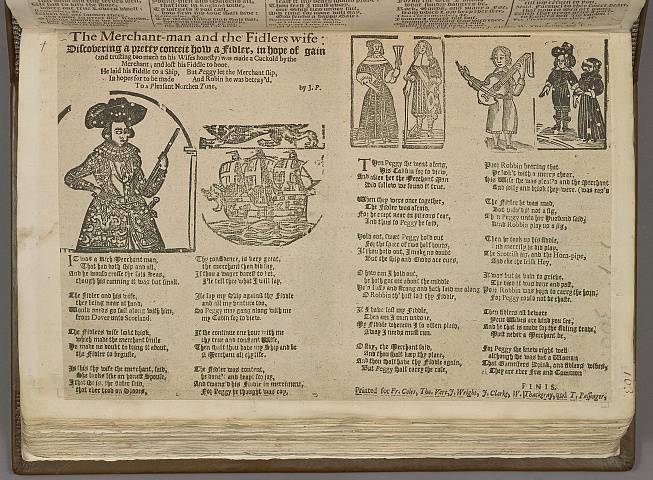 The Merchant-man and the Fidlers wife:
Discovering a pretty conceit how a Fidler, in hope of gain
(and trusting too much to his Wifes honesty) was made a Cuckold by the
Merchant; and lost his Fiddle to boot.
He laid his Fiddle to a Ship, But Peggy let the Merchant slip,
In hopes for to be made And Robin he was betray'd.
To a Pleasant Northern Tune, by J. P.
IT was a rich Merchant man,
That had both ship and all,
And he would cross the salt Seas,
though his cunning it was but small.
The Fidler and his wife,
they being near at hand,
Would needs go sail along with him,
from Dover unto Scotland.
The Fidlers wife look'd brisk,
which made the Merchant smile
He made no doubt to bring it about,
the Fidler to beguile.
Is this thy wife the merchant said,
She looks like an honest Spouse,
I that she is, the Fidler said,
that ever trod on Shooes,
Thy confidence, is very great,
the merchant then did say,
If thou a wager darest to
I'le tell thee what I will lay.
Ile lay my Ship against thy Fiddle
and all my
So Peggy may gang along with me
my Cabin for to view.
If she continue one hour with me
thy true and constant Wife,
Then shalt thou have my Ship and be
a Merchant all thy life.
The Fidler was content,
he danc'd and leap'd for joy,
And twang'd his Fiddle in merriment,
For Peggy he thought was coy.
THen Peggy she went along,
His Cabbin for to view,
And after her the Merchant Man
Did follow we found it true.
When they were once together,
The Fidler was afraid,
For he crept near in pitious fear,
And thus to Peggy he said,
Hold out, sweet Peggy hold out
For the space of two half hours,
If thou hold out, I make no doubt
But the ship and Goods are ours.
O how can I hold out,
he hath got me about the middle
He's lusty and strong and hath laid me along
O Robin th' hast lost thy Fiddle,
If I have lost my Fiddle,
Then am I man undone,
My Fiddle whereon I so often plaid,
Away I needs must run.
O stay, the Merchant said,
And thou shalt keep thy place,
And thou shalt have thy Fiddle again,
But Peggy shall carry the case,
Poor Robbin hearing that
He look't with a merry chear,
His Wife she was pleas'd and the Merchant
And jolly and brisk they were. (was eas'd
The Fidler he was mad,
But valu'd it not a fig,
Then Peggy unto her Husband said,
Kind Robbin play us a jig,
Then he took up his fiddle,
and merrily he did play,
The Scottish jig, and the Horn-pipe,
And eke the Irish Hey,
It was but in vain to grieve,
The deed it was done and past,
Poor Robbin was born to carry the horn,
For Peggy could not be chaste.
Then fidlers all beware
Your Wives are kind you see,
And he that is made for the fidling trade,
Must never a Merchant be,
For Peggy she knew right well
although she was but a Woman
That Gamesters Drink, and fidlers wives,
They are ever Free and Common
FINIS.
Printed for Fr. Coles, Tho. Vere, J. Wright, J. Clarke, W. Thackeray, and T. Passenger,
103